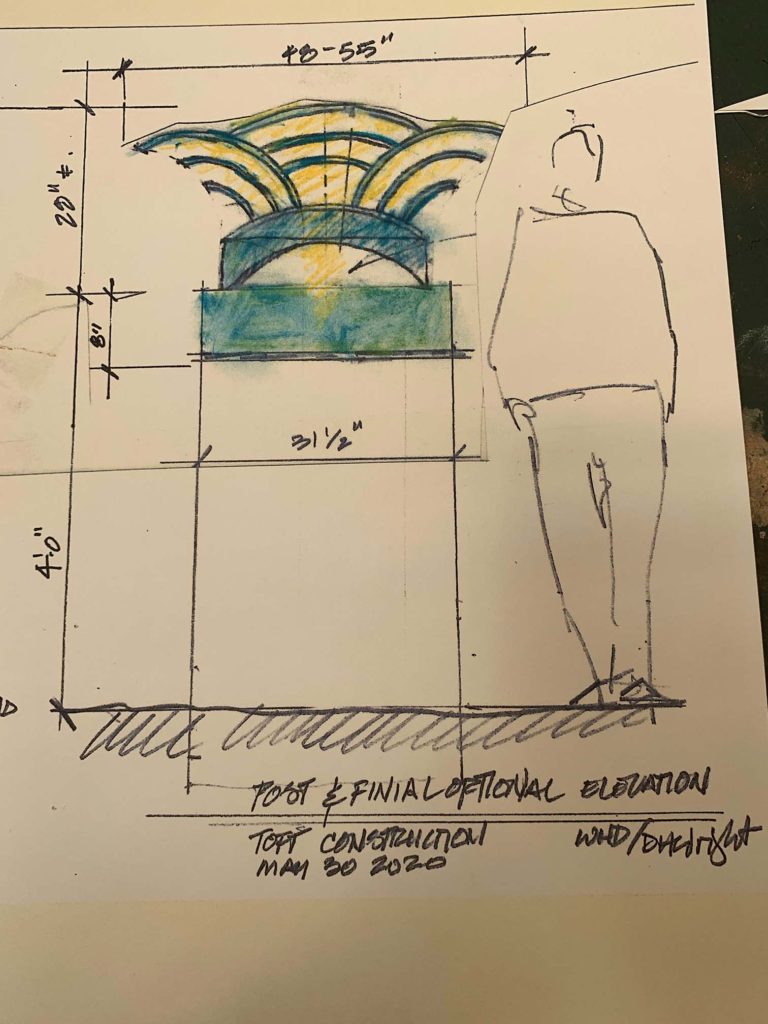 48-55"
8"
31 1/2"
4'0"
POST & FINIAL OPTIONAL ELEVATION
TOFT CONSTRUCTION
MAY 30 2020
WHD/